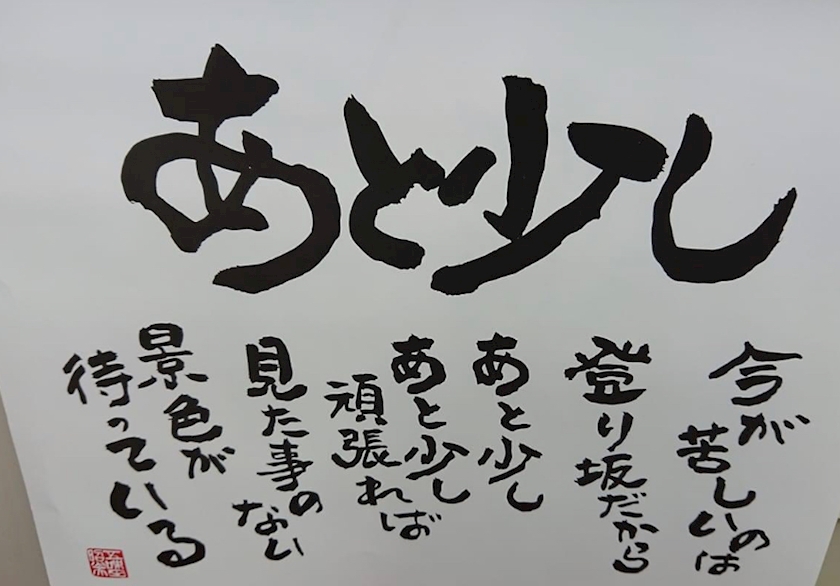 あと少し
今が
苦しいのは
登り坂だから
あと少し
あと少し
頑張れば
見た事の
ない
景色が
待っている